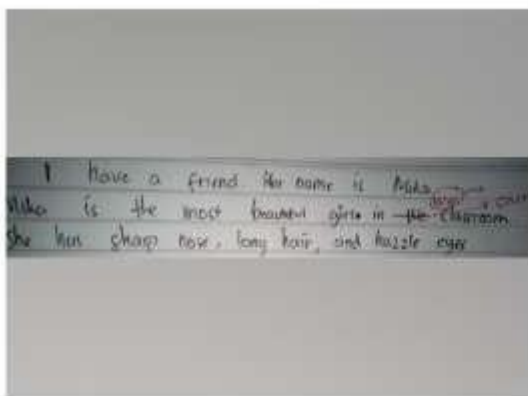 I have a friend Her name is
is the most beautiful girls in the classroom
she has sharp nose, long hair, and hazzle eyes